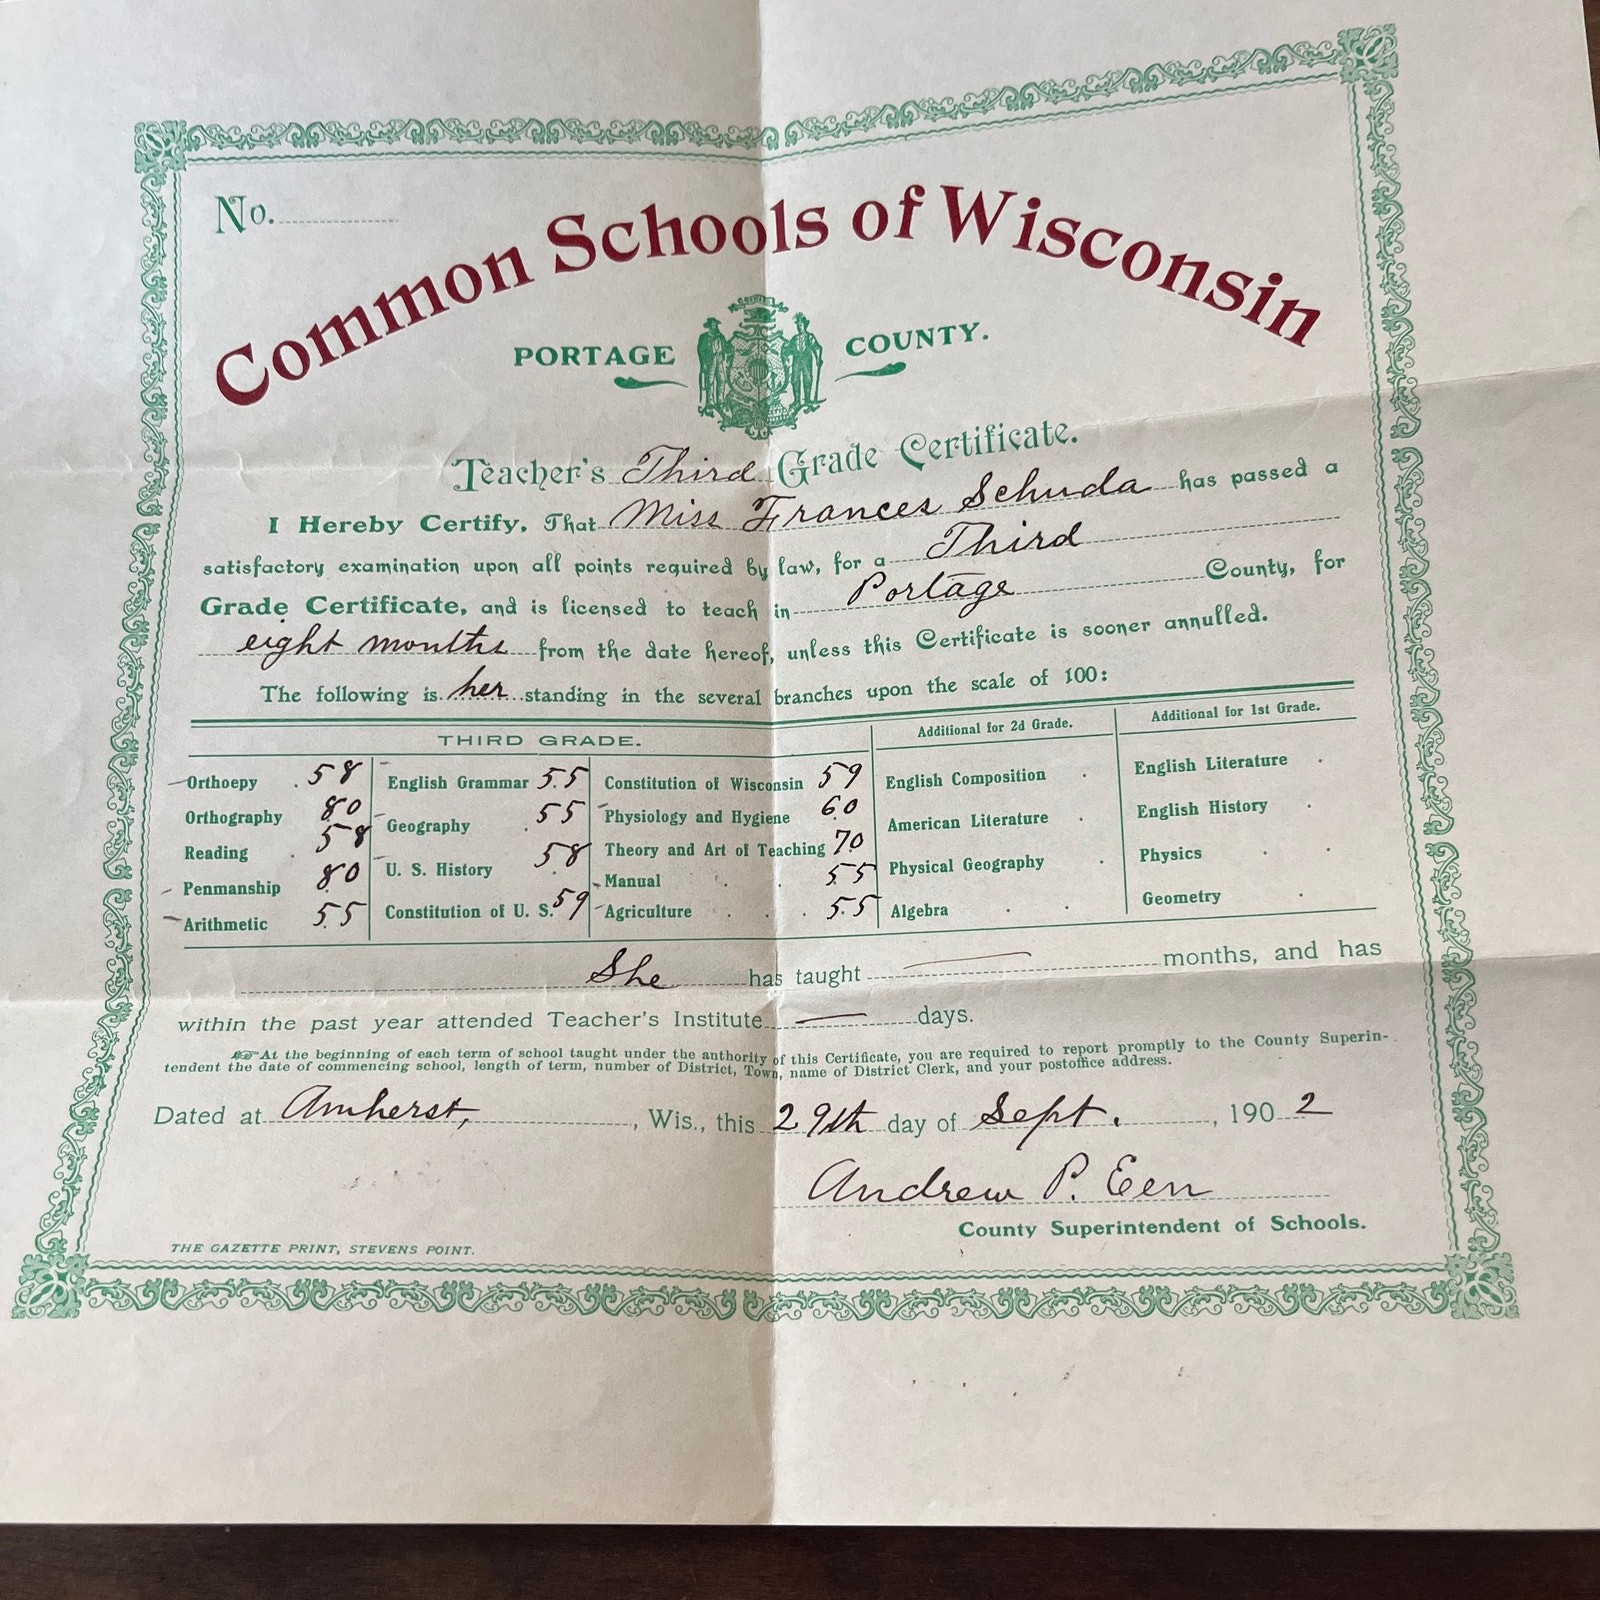 No.
Common Schools of Wisconsin
PORTAGE COUNTY.
Teacher's Third Grade Certificate.
I Hereby Certify, That Miss Frances Schuda has passed a
satisfactory examination upon all points required by law, for a Third
Grade Certificate, and is licensed to teach in Portage County, for
eight months from the date hereof, unless this Certificate is sooner annulled.
The following is her standing in the several branches upon the scale of 100:
THIRD GRADE. Additional for 2d Grade. Additional for 1st Grade.
Orthoepy 58 English Grammar 55 Constitution of Wisconsin 59 English Composition English Literature
Orthography 80 Geography 55 Physiology and Hygiene 60 American Literature English History
Reading 58 U. S. History 58 Theory and Art of Teaching 70 Physical Geography Physics
Penmanship 80 Constitution of U. S. 59 Manual 55 Algebra Geometry
Arithmetic 55 Agriculture 55
She has taught — months, and has
within the past year attended Teacher's Institute — days.
☞At the beginning of each term of school taught under the authority of this Certificate, you are required to report promptly to the County Superin-
tendent the date of commencing school, length of term, number of District, Town, name of District Clerk, and your postoffice address.
Dated at Amherst, , Wis., this 29th day of Sept. , 1902
Andrew P. Een
County Superintendent of Schools.
THE GAZETTE PRINT, STEVENS POINT.